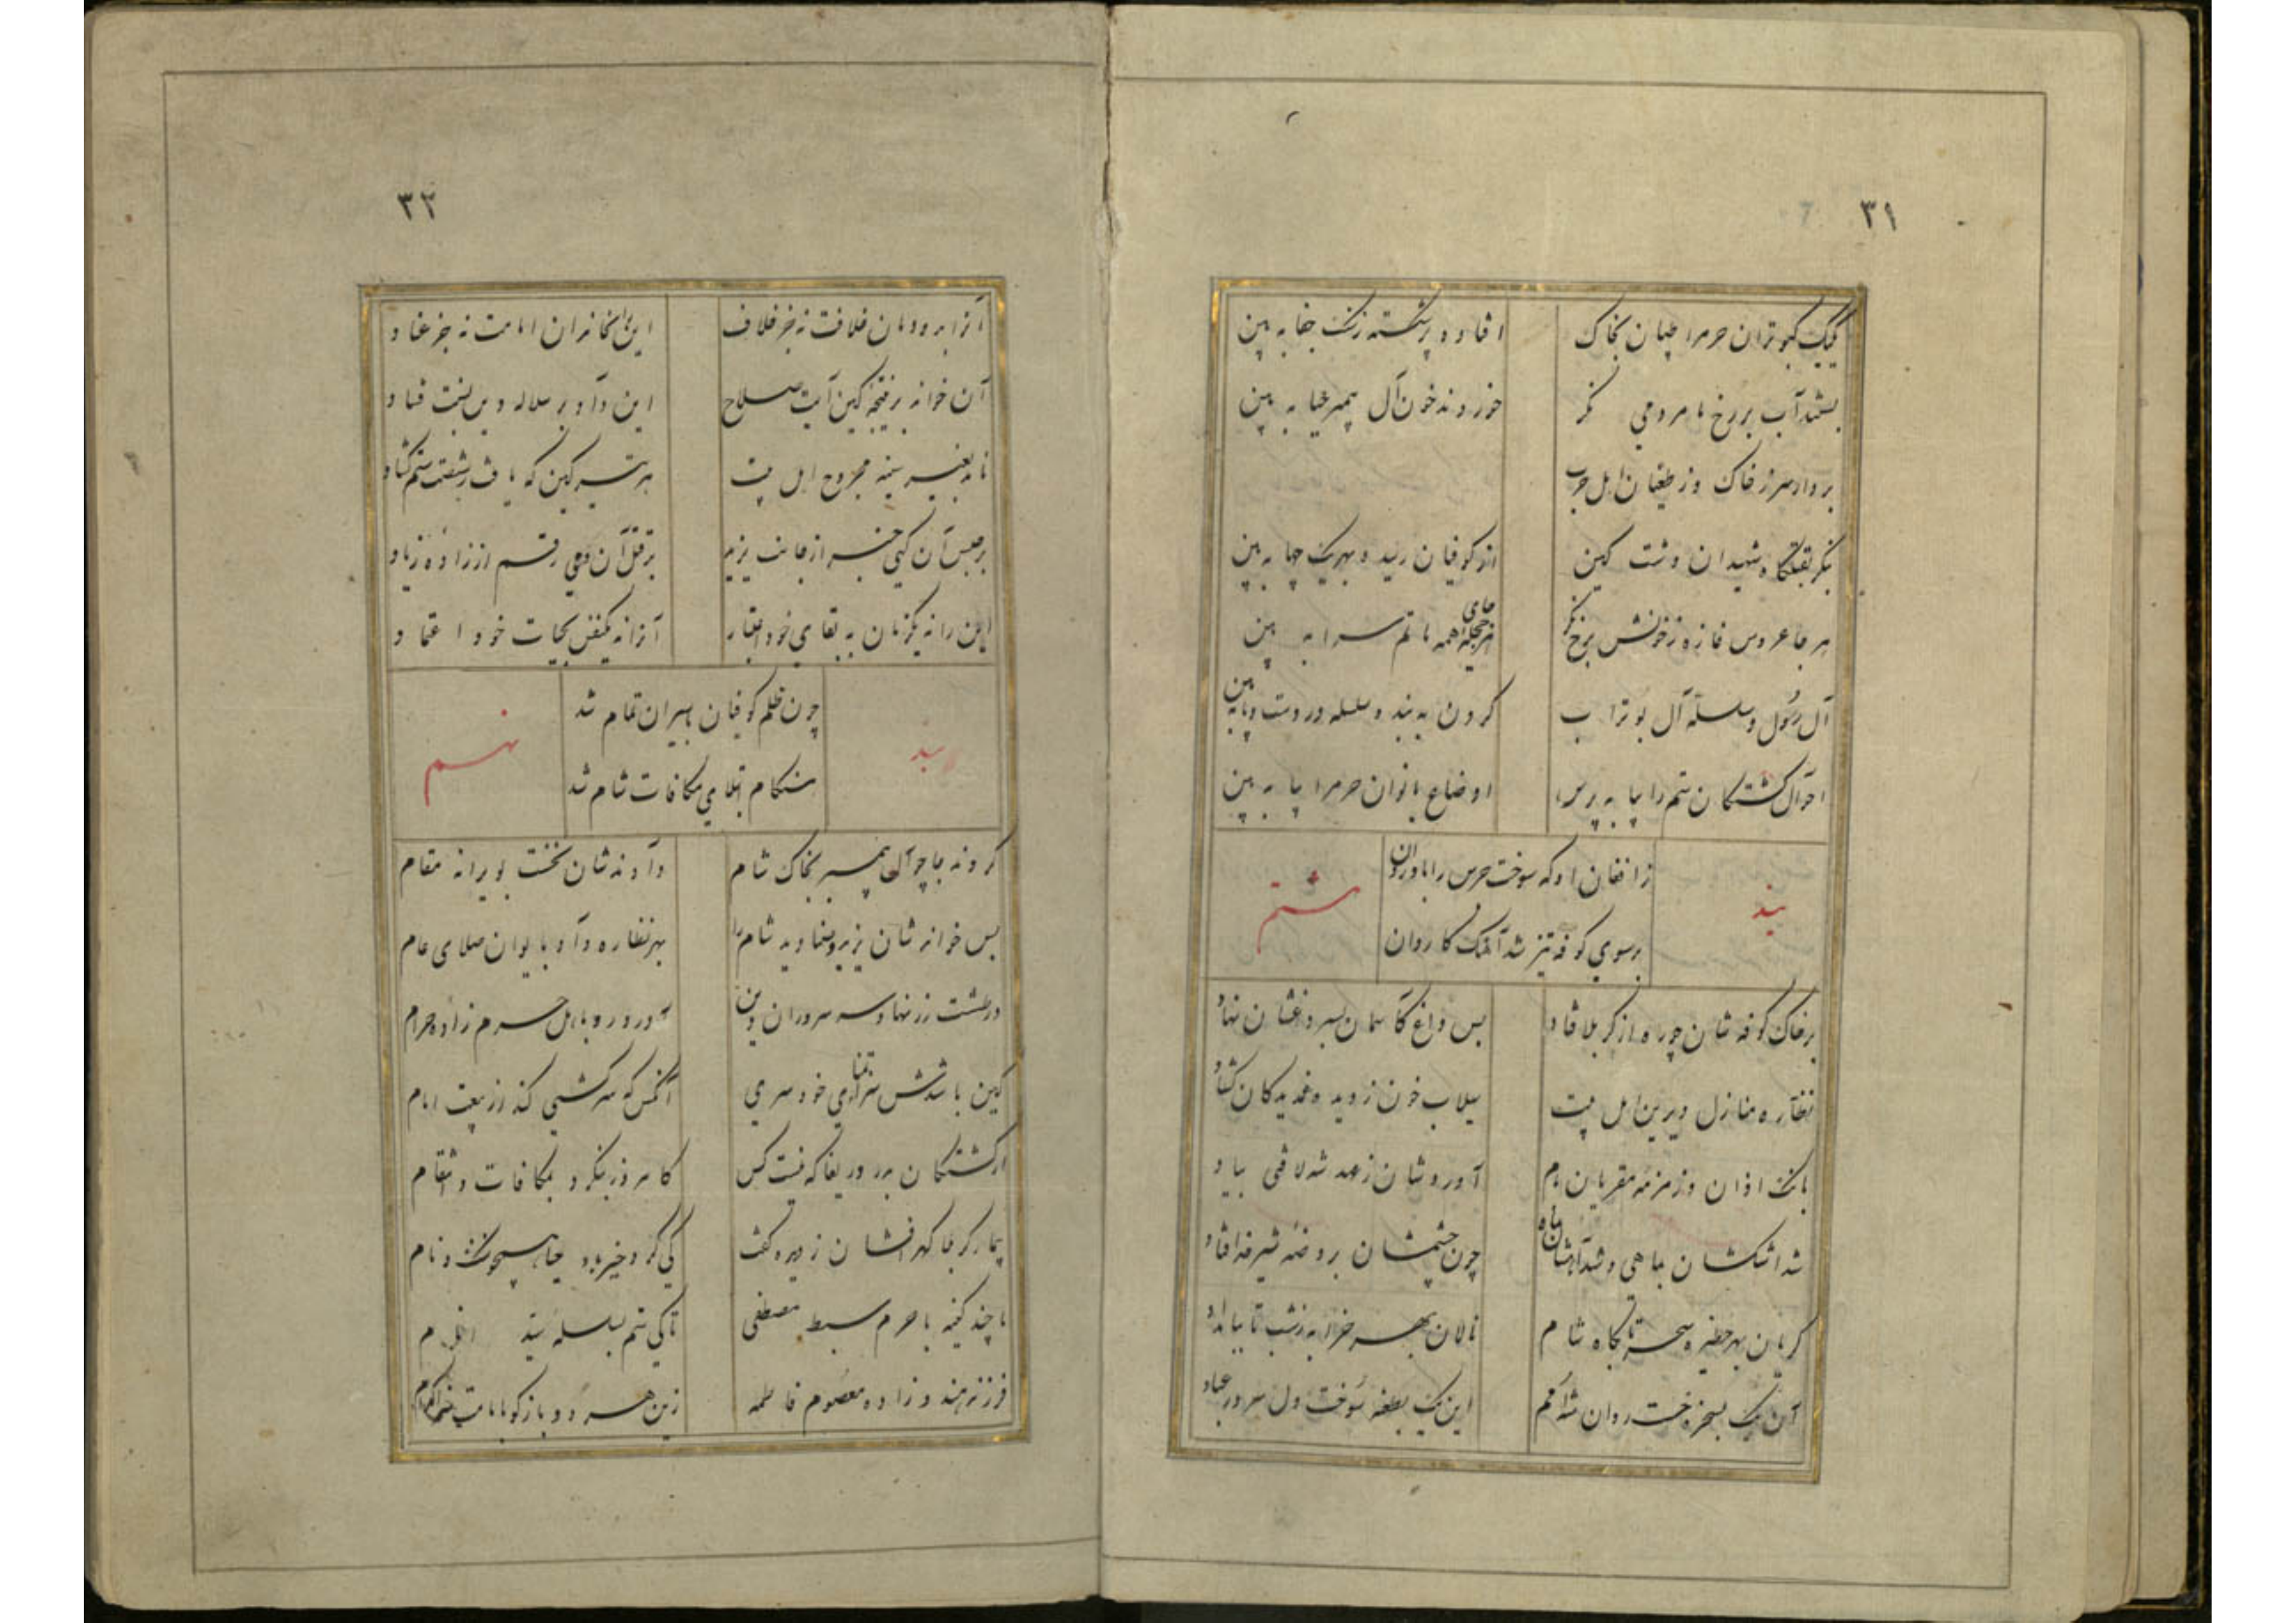 ۳۱
یک یک کبوتران حرم را چسان بخاک
افتاده پر شکسته ز سنگ جفا به بین
بستند آب بر رخ ما مردمی نگر
خوردند خون آل پیمبر حیا به بین
بردار سر ز خاک و ز طغیان اهل حرب
بنگر بقتلگاه شهیدان دشت کین
از کوفیان رسید و بهر یک چها به بین
هر جا عروس غازه ز خونش برخ نگر
هر حجله جای همه ماتم سرا به بین
آل رسول و سلسله آل بوتراب
گردن به بند و سلسله در دست و پا به بین
احوال کشتگان ستم را بیا به پرس
اوضاع بانوان حرم را بیا به بین
بند
زافغان او که سوخت جرس را
برسوی کوفه تیز شد آهنگ کاروان
هشتم
بر خاک کوفه شان چو ره از کربلا فتاد
بس داغ کآسمان بسر داغشان نهاد
نظاره منازل دیرین اهل بیت
سیلاب خون ز دیده غمدیدگان گشاد
بانک اذان و زمزمه مقریان بام
آوردشان ز عهد شه لافتی بیاد
شد اشکشان بماهی و شد آهشان بماه
چون چشمشان بروضه شیر خدا فتاد
گریان بهر حظیره و سحر تا بگاه شام
نالان بهر خرابه ز شب تا ببامداد
آن یک روان
این یک بطعنه سوخت دل سرور عباد
۳۲
آنرا بدودمان خلافت نه جز خلاف
این را بخاندان امامت نه جز عناد
آن خوانده بر نتیجه کین آیت صلاح
این داده بر سلاله دین نسبت فساد
نامد بغیر سینه مجروح اهل بیت
هر تیر کین که یافت ز شصت ستم گشاد
بر حبس آن گهی خبر از جانب یزید
بر قتل آن دمی رقم از زاده زیاد
این را نه یکزمان به بقای خود اعتبار
آنرا نه یکنفس بحیات خود اعتماد
بند
چون ظلم کوفیان باسیران تمام شد
هنگام ابتلای مکافات شام شد
نهم
کردند جا چو آل پیمبر بخاک شام
دادندشان نخست بویرانه مقام
پس خواندشان یزید و
بهر نظاره داد بایوان صلای عام
در طشت زر نهاد سر سروران دین
آورد رو باهل حرم زاده حرام
کین باشدش سزای تمنای خودسری
آنکس که سرکشی کند از بیعت امام
از کشتگان بدر دریغا که نیست کس
کامروز بنگرد بمکافات و انتقام
بیمار کربلا گهرافشان ز دیده گفت
تا چند کینه با حرم سبط مصطفی
تا کی ستم بسلسله سید انام
فرزند هند و زاده معصوم فاطمه
زین هر دو باز گو بامامت